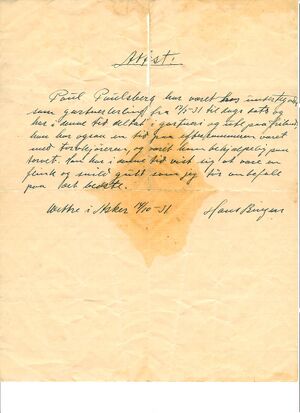 Attest!
Poul Poulsberg har været hos undertegnede
som gartnerlærling fra 17/5-31 til dags dato og
har i denne tid deltat i gartneri og
han har også en tid paa eftersommeren været
med torvkjøreren, og været ham behjælpelig paa
torvet. Han har i denne tid vist sig at være en
flink og snild gutt som jeg tør anbefale
paa det bedste.
Wettre i Asker /10-31 Hans Bergen